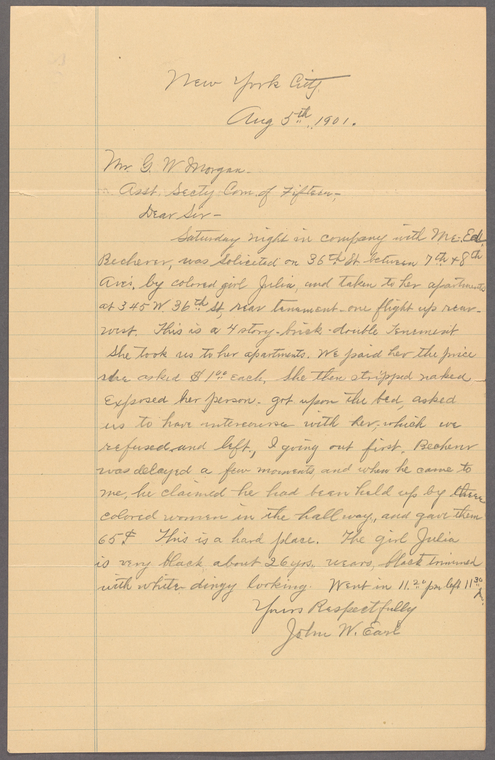 New York City.
Aug 5th, 1901.
Mr. G. W Morgan-
Asst. Secty Com. of Fifteen-
Dear Sir-
Saturday night in company with Mr. Ed.
Becherer, was solicited on 36th St. between 7th & 8th
Aves, by colored girl Julia, and taken to her apartments
at 345 W. 36th St, rear tenament - one flight up rear-
west. This is a 4 story - brick - double tenement
She took us to her apartments. We paid her the price
she asked $1.00 each, She then stripped naked
Exposed her person - got upon the bed, asked
us to have intercourse with her, which we
refused, and left, I going out first, Becherer
was delayed a few moments, and when he came to
me, he claimed he had been held up by three
colored women in the hall way, and gave them
65¢ This is a hard place. The girl Julia
is very black, about 26 yrs. wears, black trimmed
with white dingy looking. Went in 11.20 pm left 11.30
Yours Respectfully
John W. Earl